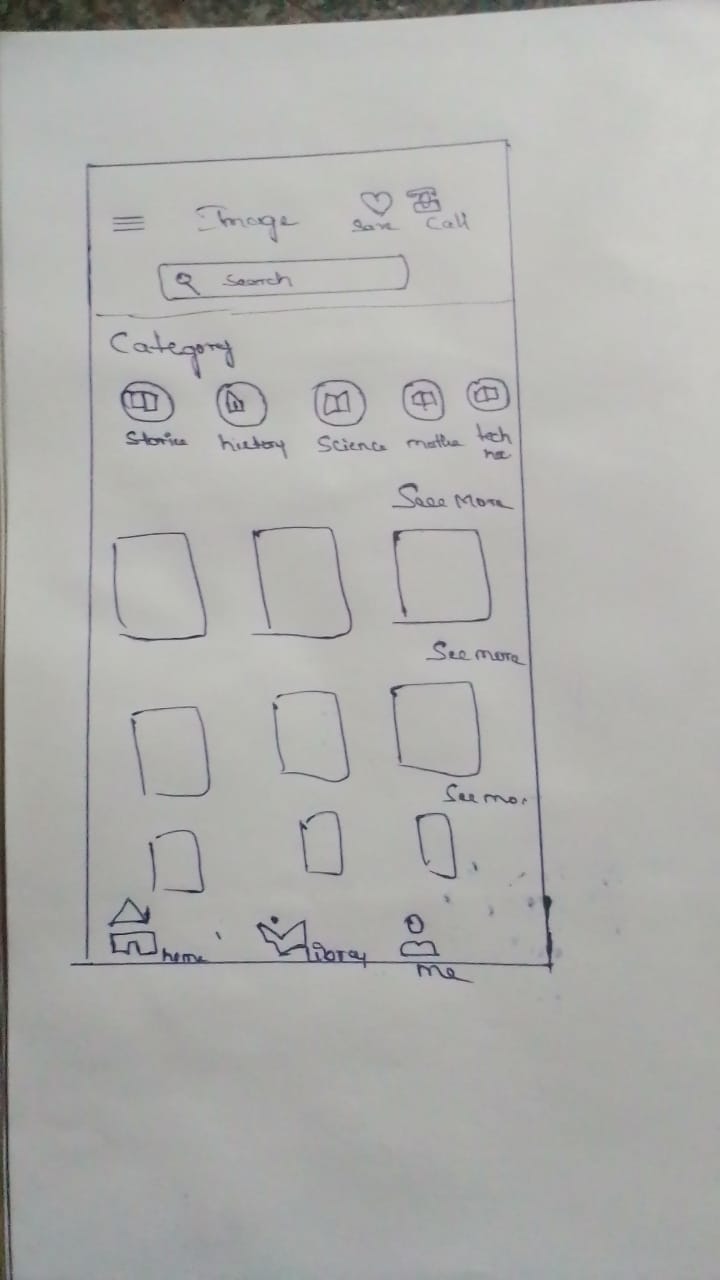 Image
Save Call
Search
Category
Stories history Science maths tech
See More
See more
See mo
home library me